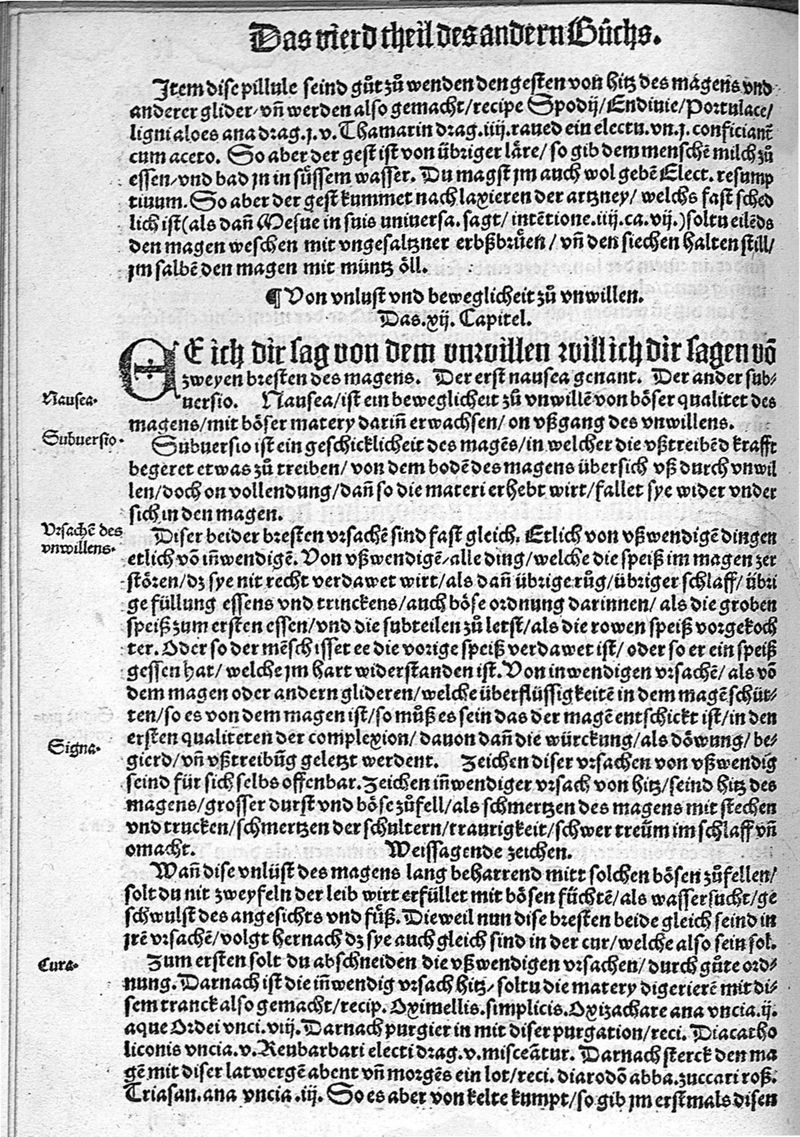 Das vierd theil des andern Bůchs.
Item dise pillule seind gůt zů wenden den gesten von hitz des magens vnd
anderer glider/ vñ werden also gemacht/ recipe Spodij/ Endiuie/ Portulace/
ligni aloes ana drag. j. v. Thamarin drag. iiij. raued ein electu. vn. j. conficianť
cum aceto. So aber der gest ist von übriger läre/ so gib dem menschē milch zů
essen/ vnd bad jn in süssem wasser. Du magst jm auch wol gebē Elect. resump
tiuum. So aber der gest kummet nach laxieren der artzney/ welchs fast sched
lich ist (als dañ Mesue in suis vniuersa. sagt/ intētione. iiij. ca. vij.) soltu eilēds
den magen weschen mit vngesaltzner erbßbrüen/ vñ den siechen halten still/
jm salbē den magen mit müntz öll.
¶ Von vnlust vnd beweglicheit zů vnwillen.
Das. xij. Capitel.
EE ich dir sag von dem vnwillen will ich dir sagen vō
zweyen bresten des magens. Der erst nausea genant. Der ander sub-
uersio. Nausea/ ist ein beweglicheit zů vnwillē von böser qualitet des
Nausea.
magens/ mit böser matery dariñ erwachsen/ on vßgang des vnwillens.
Subuersio.
Subuersio ist ein geschicklicheit des magēs/ in welcher die vßtreibēd krafft
begeret etwas zů treiben/ von dem bodē des magens übersich vß durch vnwil
len/ doch on vollendung/ dañ so die materi erhebt wirt/ fallet sye wider vnder
sich in den magen.
Vrsachē des
vnwillens.
Diser beider bresten vrsachē sind fast gleich. Etlich von vßwendigē dingen
etlich vō iñwendigē. Von vßwendigē/ alle ding/ welche die speiß im magen zer
stören/ dz sye nit recht verdawet wirt/ als dañ übrige rüg/ übriger schlaff/ übri
ge füllung essens vnd trinckens/ auch böse ordnung darinnen/ als die groben
speiß zum ersten essen/ vnd die subteilen zů letst/ als die rowen speiß vor gekoch
ter. Oder so der mēsch isset ee die vorige speiß verdawet ist/ oder so er ein speiß
gessen hat/ welche jm hart widerstanden ist. Von inwendigen vrsachē/ als vō
dem magen oder andern glideren/ welche überflüssigkeitē in dem magē schüt-
ten/ so es von dem magen ist/ so můß es sein das der magē entschickt ist/ in den
ersten qualiteten der complexion/ dauon dañ die würckung/ als döwung/ be-
Signa.
gierd/ vñ vßtreibūg geletzt werdent. Zeichen diser vrsachen von vßwendig
seind für sich selbs offenbar. Zeichen iñwendiger vrsach von hitz/ seind hitz des
magens/ grosser durst vnd böse zůfell/ als schmertzen des magens mit stechen
vnd trucken/ schmertzen der schultern/ traurigkeit/ schwer treüm im schlaff vñ
omacht. Weissagende zeichen.
Wañ dise vnlüst des magens lang beharrend mitt solchen bösen zůfellen/
solt du nit zweyfeln der leib wirt erfüllet mit bösen füchtē/ als wassersucht/ ge
schwulst des angesichts vnd füß. Dieweil nun dise bresten beide gleich seind in
jrē vrsachē/ volgt hernach dz sye auch gleich sind in der cur/ welche also sein sol.
Cura.
Zum ersten solt du abschneiden die vßwendigen vrsachen/ durch gůte ord-
nung. Darnach ist die iñwendig vrsach hitz/ soltu die matery digerierē mit di-
sem tranck also gemacht/ recip. Oximellis. simplicis. Oxizachare ana vncia. ij.
aque Ordei vnci. viij. Darnach purgier in mit diser purgation/ reci. Diacatho
liconis vncia. v. Reubarbari electi drag. v. misceātur. Darnach sterck den ma
gē mit diser latwergē abent vñ morgēs ein lot/ reci. diarodōn abba. zuccari roß.
Triasan. ana vncia. iij. So es aber von kelte kumpt/ so gib jm erstmals disen